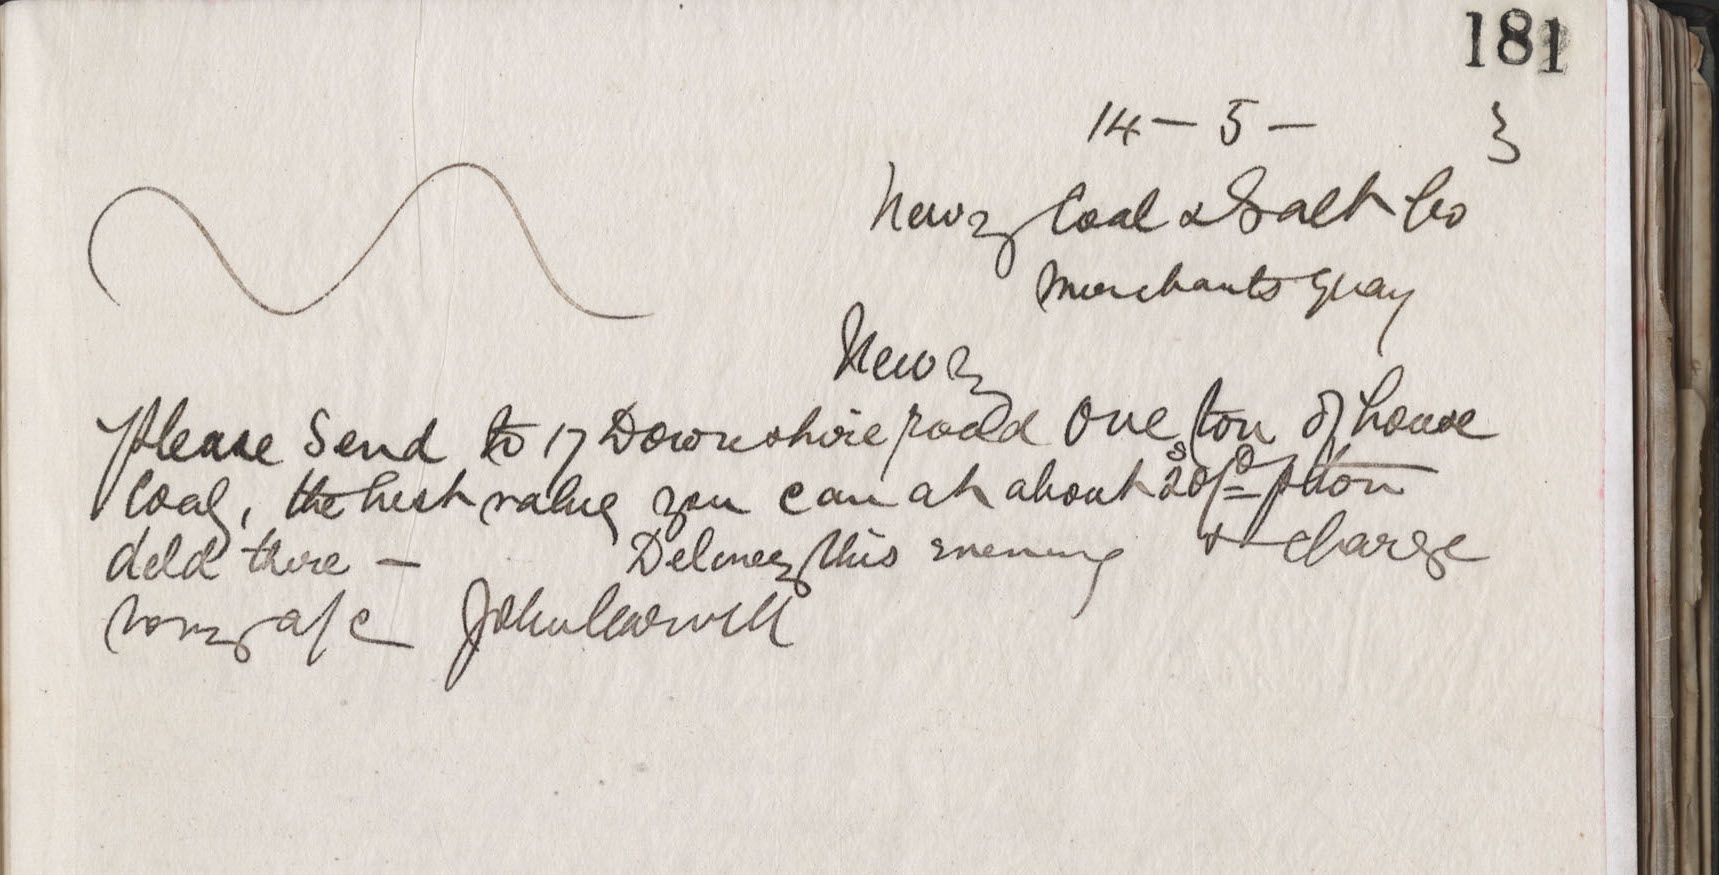 181
14 - 5 -
Newry Coal & Salt Co
Merchants Quay
Newry
Please Send to 17 Downshire road One ton of house
Coal, the best value you can at about 20/= p ton
deld there - Deliver this evening & charge
a/c John